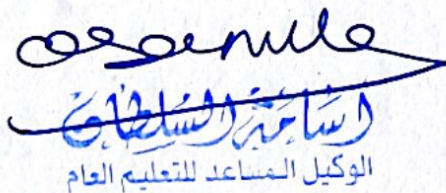 أسامة السلطان
الوكيل المساعد للتعليم العام